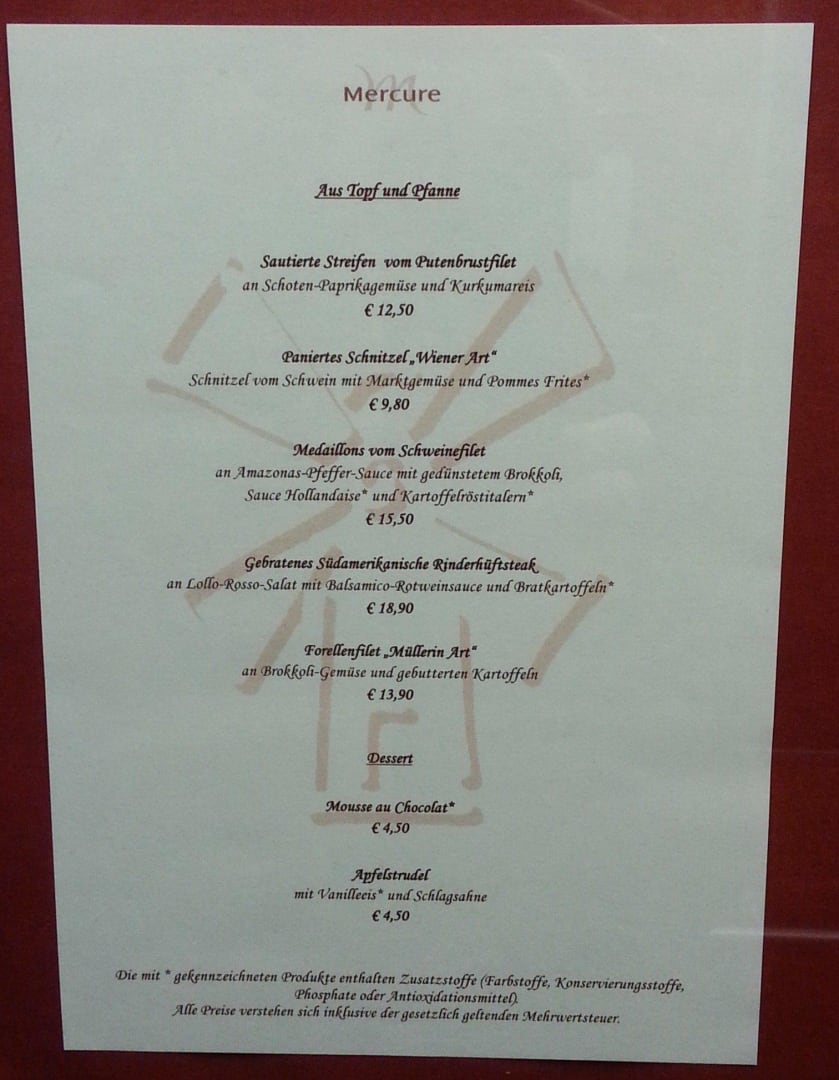 Mercure
Aus Topf und Pfanne
Sautierte Streifen vom Putenbrustfilet
an Schoten-Paprikagemüse und Kurkumareis
€ 12,50
Paniertes Schnitzel „Wiener Art“
Schnitzel vom Schwein mit Marktgemüse und Pommes Frites*
€ 9,80
Medaillons vom Schweinefilet
an Amazonas-Pfeffer-Sauce mit gedünstetem Brokkoli,
Sauce Hollandaise* und Kartoffelröstitalern*
€ 15,50
Gebratenes Südamerikanische Rinderhüftsteak
an Lollo-Rosso-Salat mit Balsamico-Rotweinsauce und Bratkartoffeln*
€ 18,90
Forellenfilet „Müllerin Art“
an Brokkoli-Gemüse und gebutterten Kartoffeln
€ 13,90
Dessert
Mousse au Chocolat*
€ 4,50
Apfelstrudel
mit Vanilleeis* und Schlagsahne
€ 4,50
Die mit * gekennzeichneten Produkte enthalten Zusatzstoffe (Farbstoffe, Konservierungsstoffe,
Phosphate oder Antioxidationsmittel).
Alle Preise verstehen sich inklusive der gesetzlich geltenden Mehrwertsteuer.